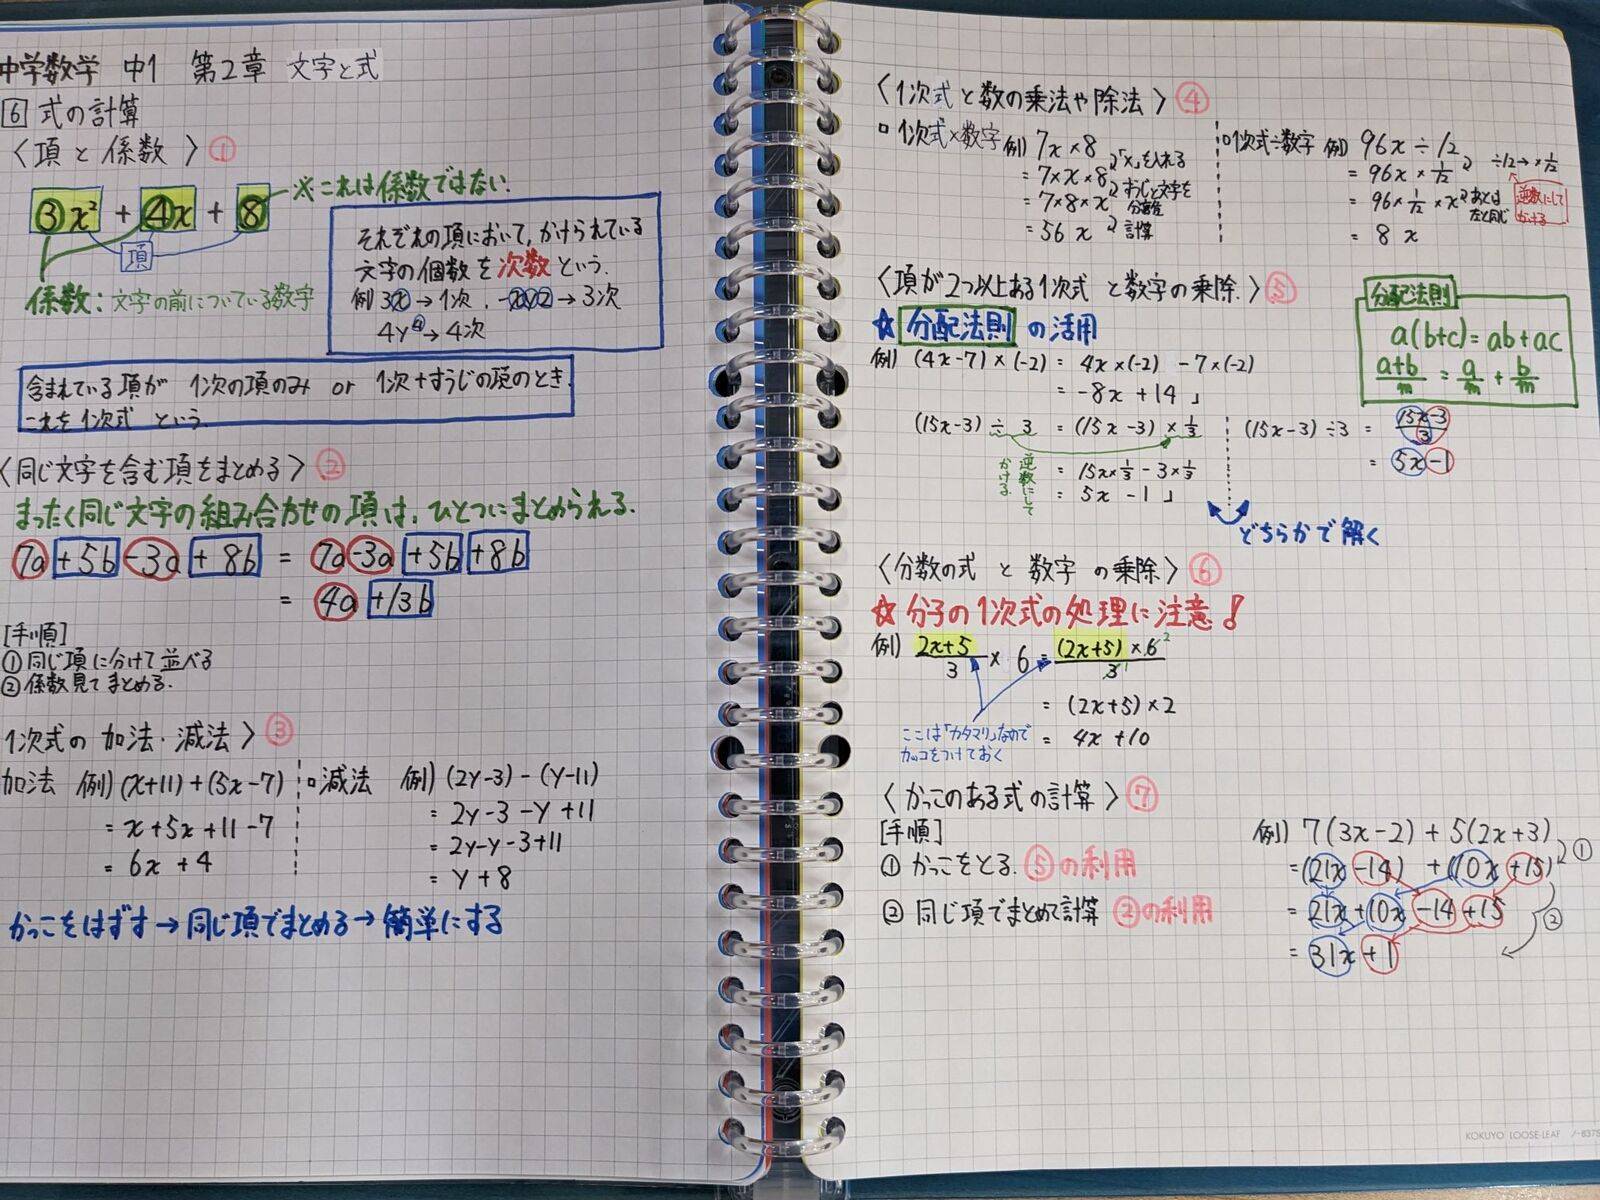 中学数学 中1 第2章 文字と式
6 式の計算
〈項と係数〉①
3x² + 4x + 8 ※これは係数ではない.
項
係数：文字の前についている数字
それぞれの項において，かけられている
文字の個数を次数という.
例 3x→1次，
→3次
4y④→4次
含まれている項が 1次の項のみ or 1次+すうじの項のとき.
これを1次式 という.
〈同じ文字を含む項をまとめる〉②
まったく同じ文字の組み合わせの項は，ひとつにまとめられる.
7a +5b -3a + 8b = 7a -3a +5b +8b
= 4a +13b
[手順]
① 同じ項に分けて並べる
② 係数見てまとめる.
1次式の 加法・減法〉③
加法 例) (x+11)+(5x-7)
= x+5x+11-7
= 6x+4
減法 例) (2y-3)-(y-11)
= 2y-3-y+11
= 2y-y-3+11
= y+8
かっこをはずす→同じ項でまとめる→簡単にする
〈1次式と数の乗法や除法〉④
1次式×数字 例) 7x×8
= 7×x×8 「×」を入れる
= 7×8×x すうじと文字を
= 56x 計算
1次式÷数字 例) 96x÷12
= 96x×1/12 ÷12→×1/12
逆数にして
かける
= 96×1/12×x あとは
左と同じ
= 8x
〈項が2つ以上ある1次式と数字の乗除.〉⑤
☆分配法則の活用
例) (4x-7)×(-2) = 4x×(-2) -7×(-2)
= -8x+14」
分配法則
a(b+c)=ab+ac
(a+b)/m = a/m + b/m
(15x-3)÷3 = (15x-3)×1/3
逆数にして
かける
= 15x×1/3 - 3×1/3
= 5x -1」
(15x-3)÷3 = (15x-3)/3
= 5x-1
どちらかで解く
〈分数の式 と 数字 の乗除〉⑥
☆分子の1次式の処理に注意!
例) (2x+5)/3 × 6 = (2x+5)×6²/3¹
= (2x+5)×2
= 4x+10
ここは「カタマリ」なので
カッコをつけておく
〈かっこのある式の計算〉⑦
[手順]
① かっこをとる. ⑤の利用
② 同じ項でまとめて計算 ②の利用
例) 7(3x-2)+5(2x+3)
= (21x-14) + (10x+15) ①
= 21x+10x-14+15 ②
= 31x+1
KOKUYO LOOSE-LEAF